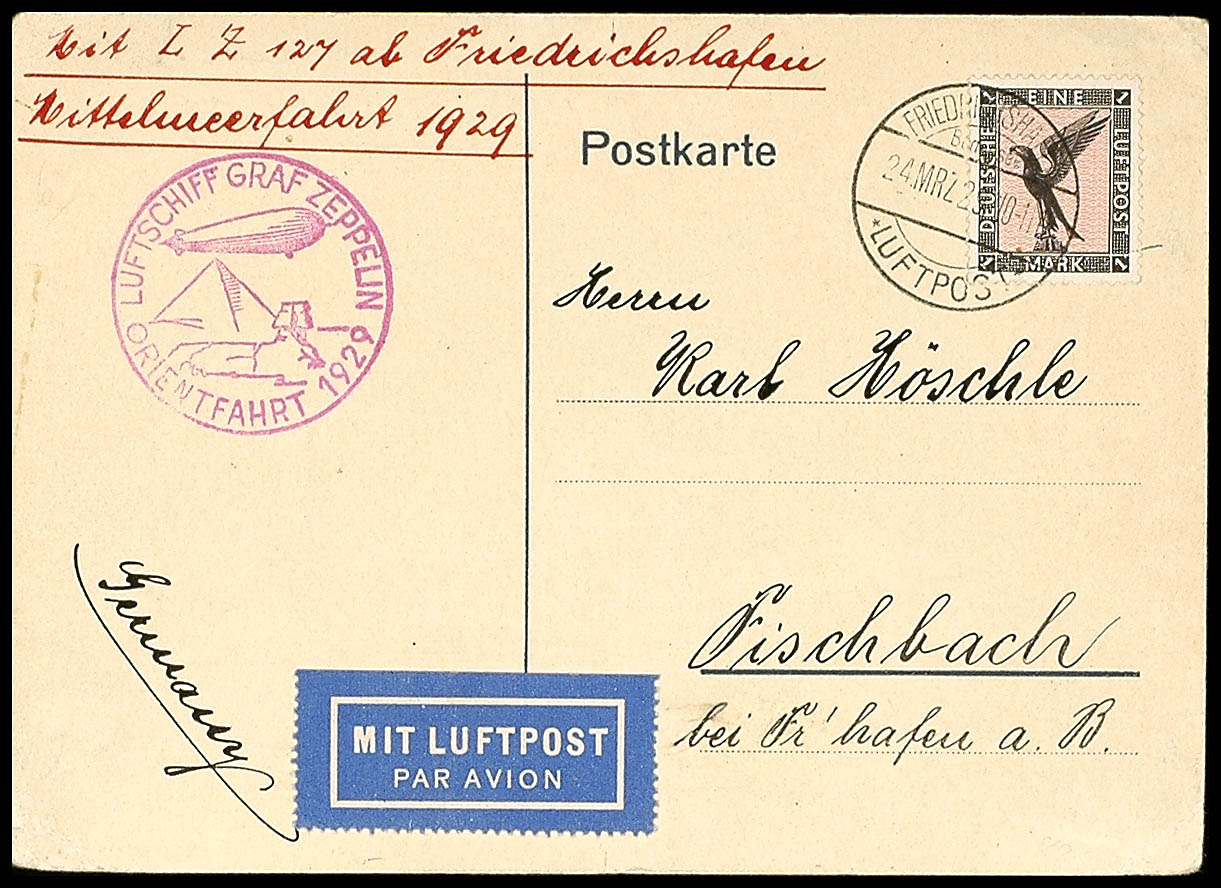 Mit L Z 127 ab Friedrichshafen
Mittelmeerfahrt 1929
LUFTSCHIFF GRAF ZEPPELIN
ORIENTFAHRT 1929
Postkarte
FRIEDRICHSHAFEN
24.MRZ.29.
* LUFTPOST
EINE
DEUTSCHE
LUFTPOST
MARK
1 1 1 1
Herrn
Karl Höschle
Fischbach
bei Fr'hafen a. B.
Germany
MIT LUFTPOST
PAR AVION